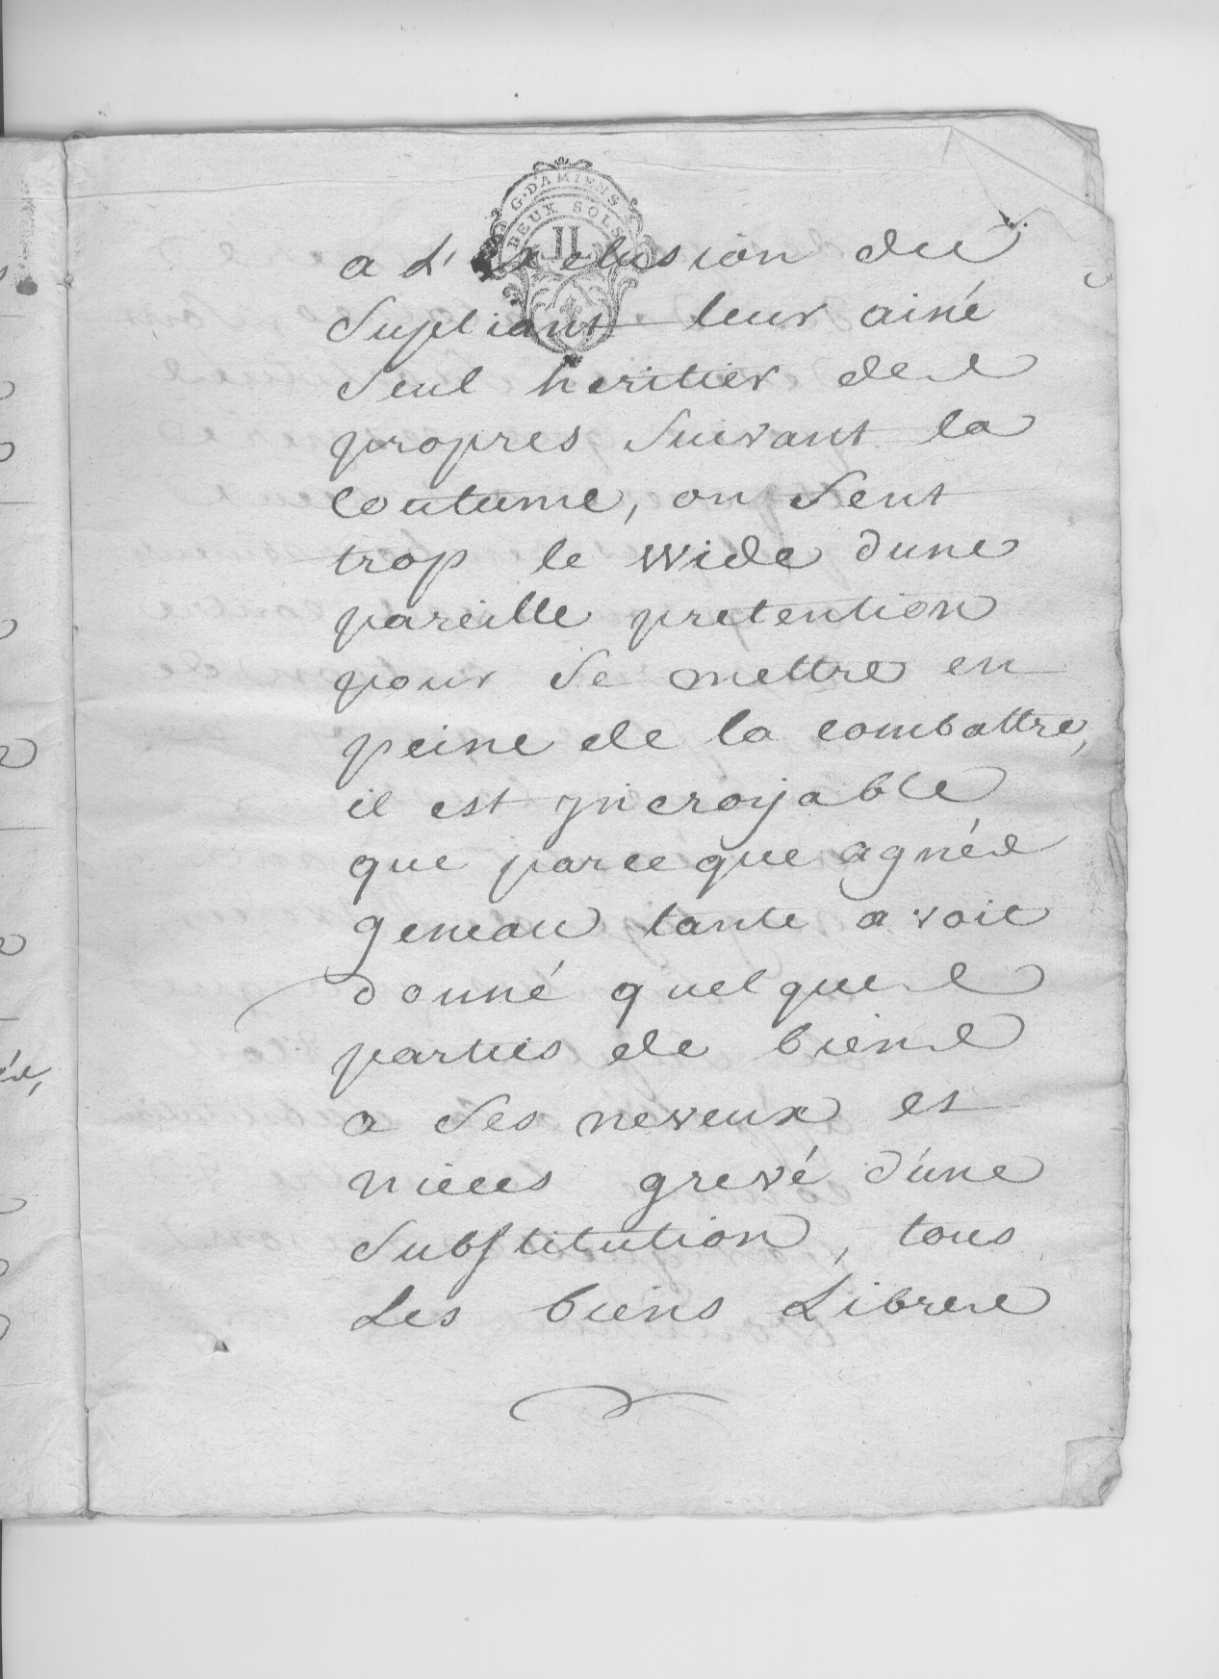 G. DAMIENS
DEUX SOLS
II
a L'exclusion du
Supliant leur ainé
Seul heritier des
propres Suivant la
Coutume, on Sent
trop le wide dune
pareille pretention
pour Se mettre en
peine de la combattre,
il est yncroyable
que parce que agnés
geneau tante avoit
donné quelques
parties de biens
a Ses neveux et
nieces grevé d'une
Substitution, tous
Les biens Libres